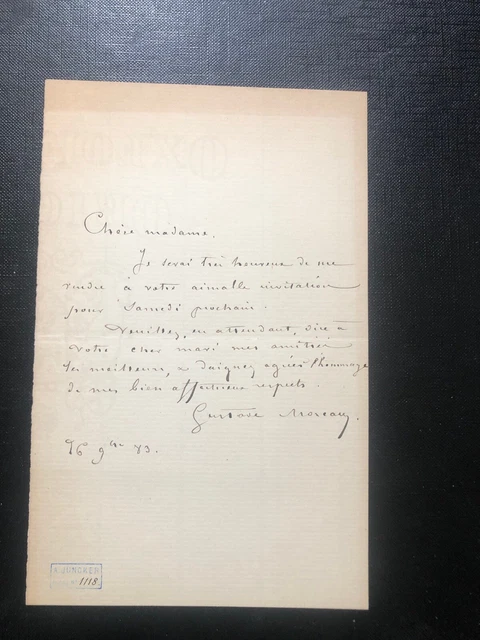 Chère madame.
Je serai très heureux de me
rendre à votre aimable invitation
pour Samedi prochain.
Veuillez, en attendant, dire à
votre cher mari mes amitiés
les meilleurs, & daignez agréer l'hommage
de mes bien affectueux respects.
Gustave Moreau.
26 9bre 83.
A. JUNCKER
1118